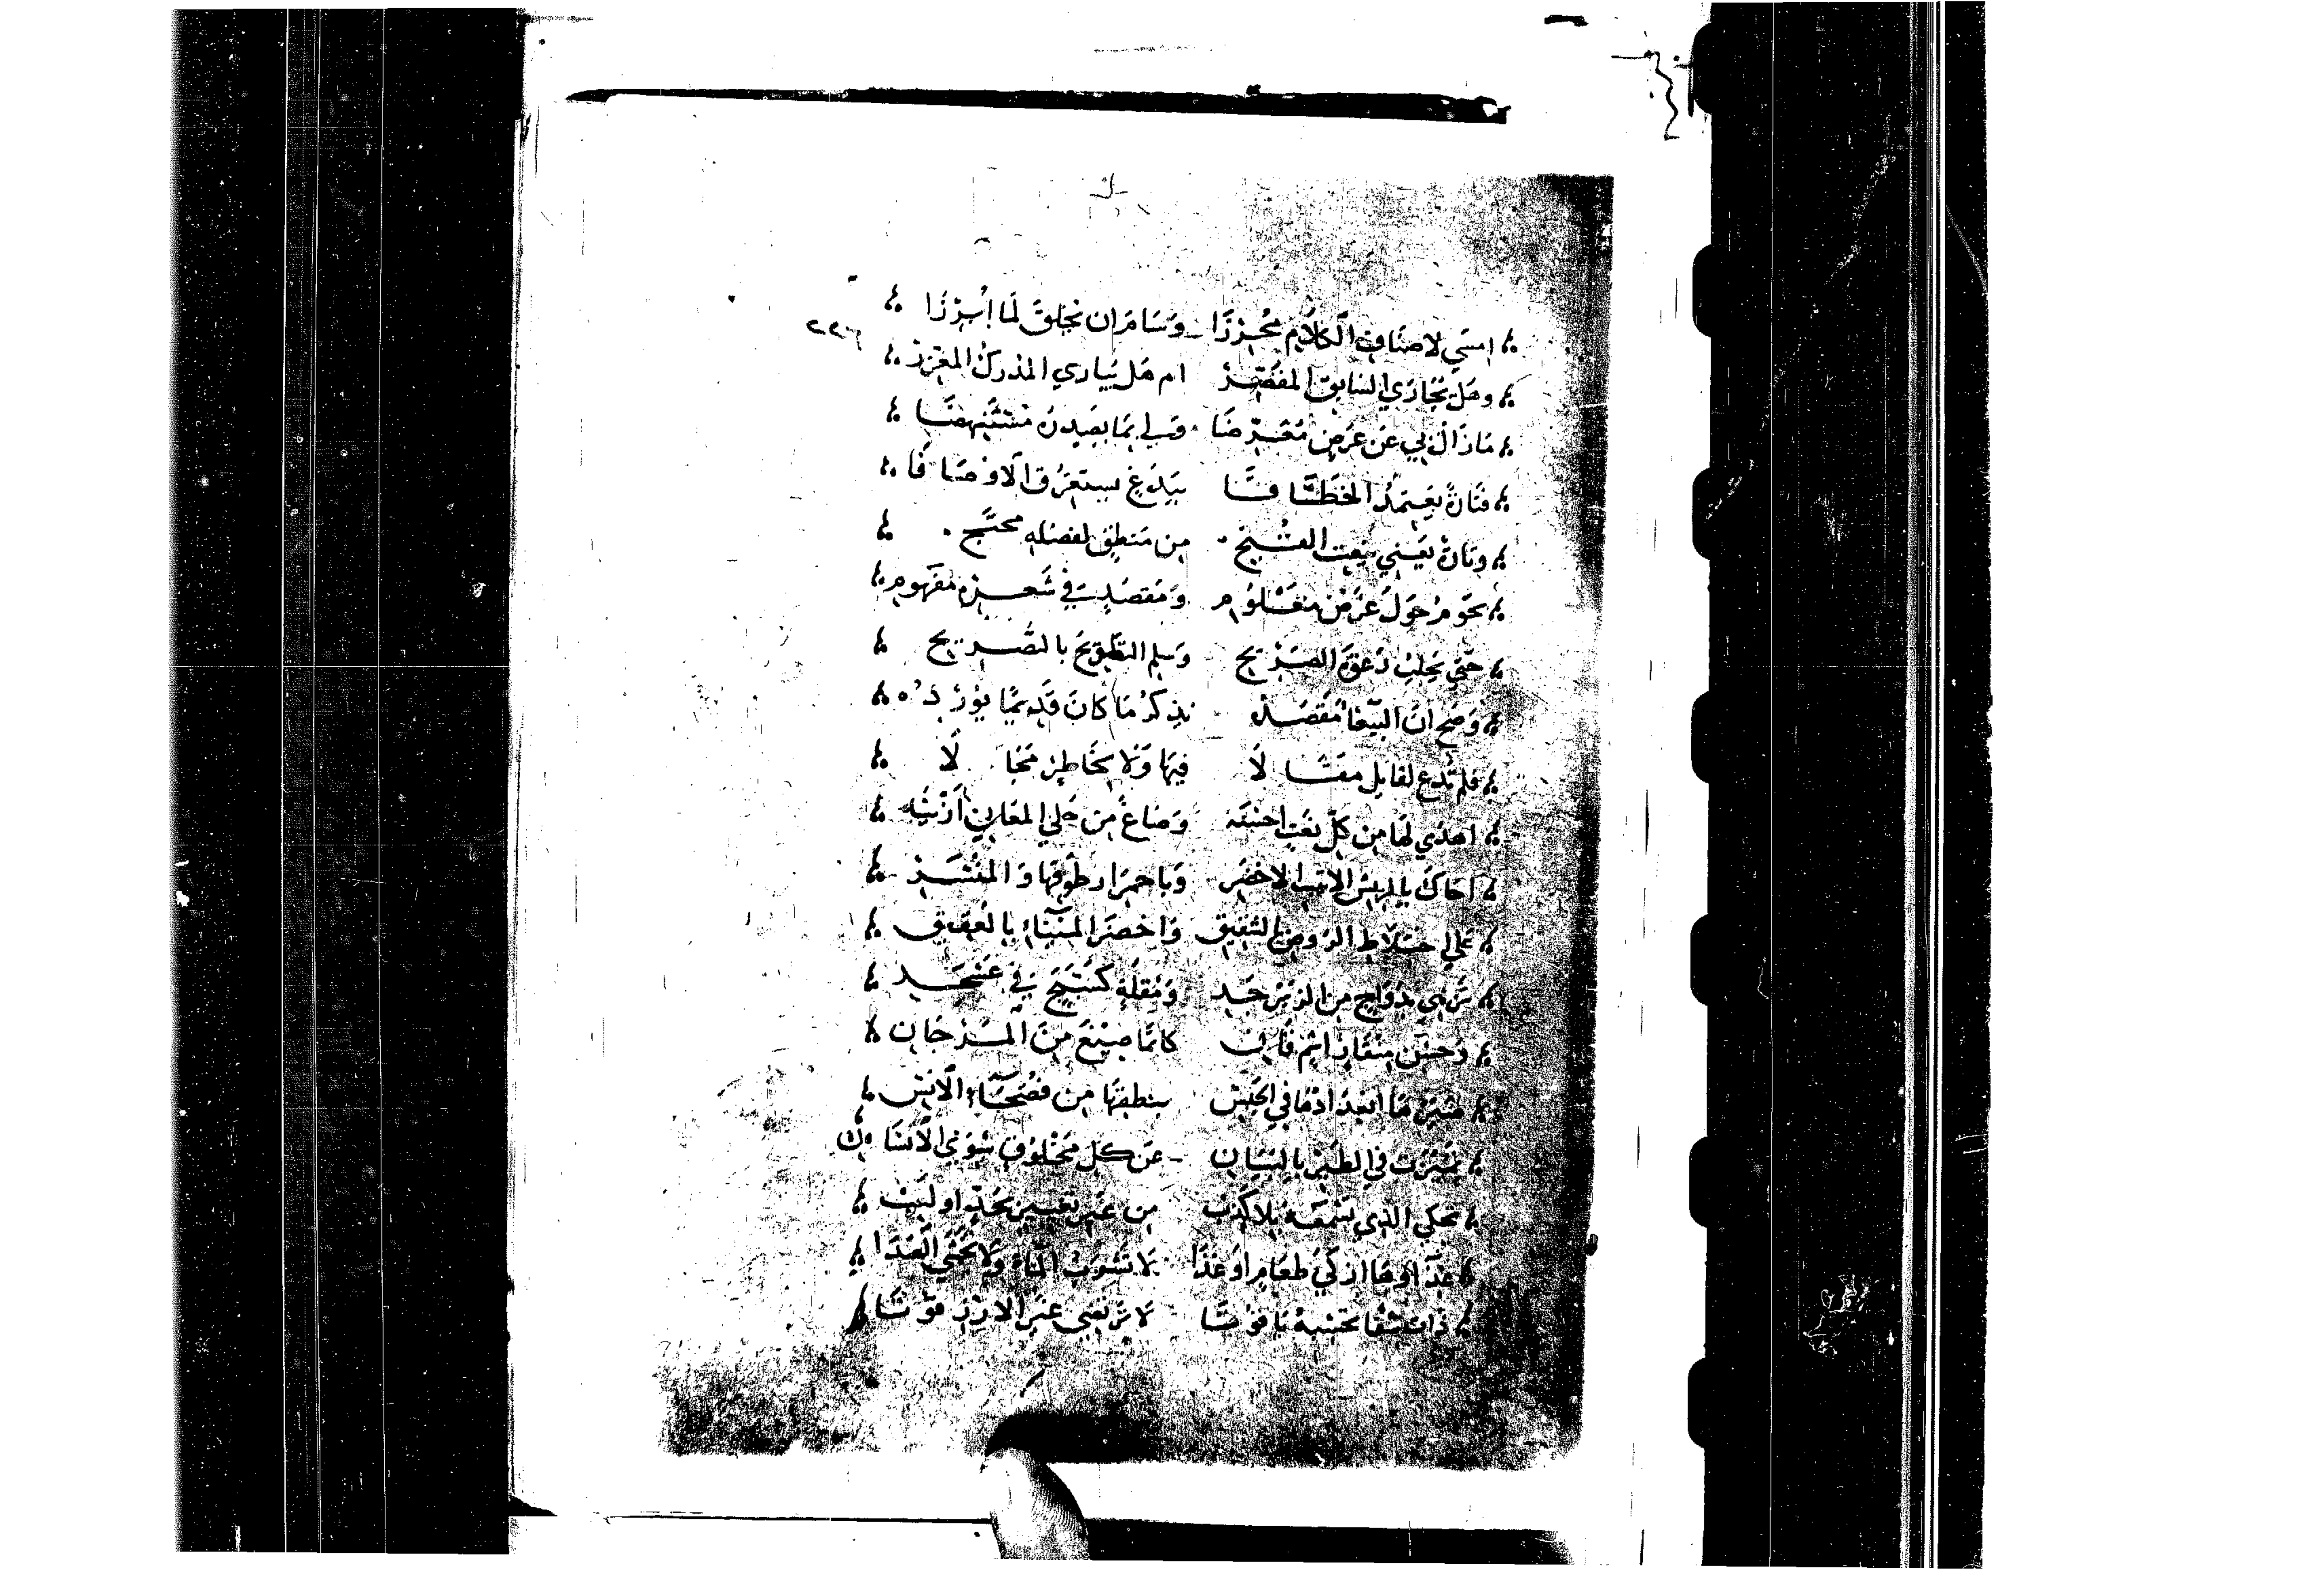 امسي لاصناف الكلام محرزا وسامران نخلق لما ابرزا
٢٢٦
وهل يجاري السابق المقصر ام هل يباري المدرك المعزز
مازال بي عن غرض معرضا ولي بما يصدن مستنهضا
فتارة يعتمد الخطافا ببدع يستغرق الاوصافا
وتارة يعني بنعت القبج من منطق لفضله محتج
يحوم حول غرض معلوم ومقصد في شعره مفهوم
حتي تجلت دعوة الصريح وسلم التلويح بالتصريح
وضح ان الببغا مقصده بذكر ما كان قديما يورده
فلم تدع لقايل مقالا فيها ولا لخاطر مجالا
اهدي لها من كل نعت احسنه وصاغ من حلي المعاني ازينه
احاك بالريش الاخضر وباحمرار طوقها والمنسر
علي اختلاط الروض بالشقيق واخضر الميناء بالعقيق
تزهي بدواج من الزبرجد ومقلة كسبج في عسجد
وحسن منقار اشم قاني كانما صيغ من المرجان
صيرها انفرادها في الحبس بنطقها من فصحاء الانس
تميزت في الطير بالبيان عن كل مخلوق سوي الانسان
تحكي الذي تسمعه بلا كذب من غير تغيير لجد او لعب
غذاوها ازكي طعام او غذا لا تشرب الماء ولا تخشي القذا
ذات شفا تحسبه ياقوتا لا ترتضي غير الارز قوتا